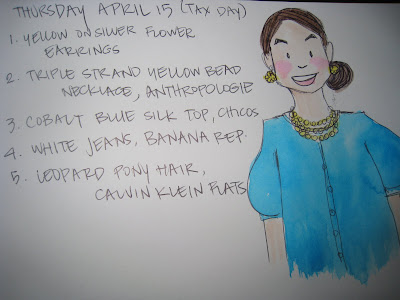 THURSDAY APRIL 15 (TAX DAY)
1. YELLOW ON SILVER FLOWER
EARRINGS
2. TRIPLE STRAND YELLOW BEAD
NECKLACE, ANTHROPOLOGIE
3. COBALT BLUE SILK TOP, CHICOS
4. WHITE JEANS, BANANA REP.
5. LEOPARD PONY HAIR,
CALVIN KLEIN FLATS